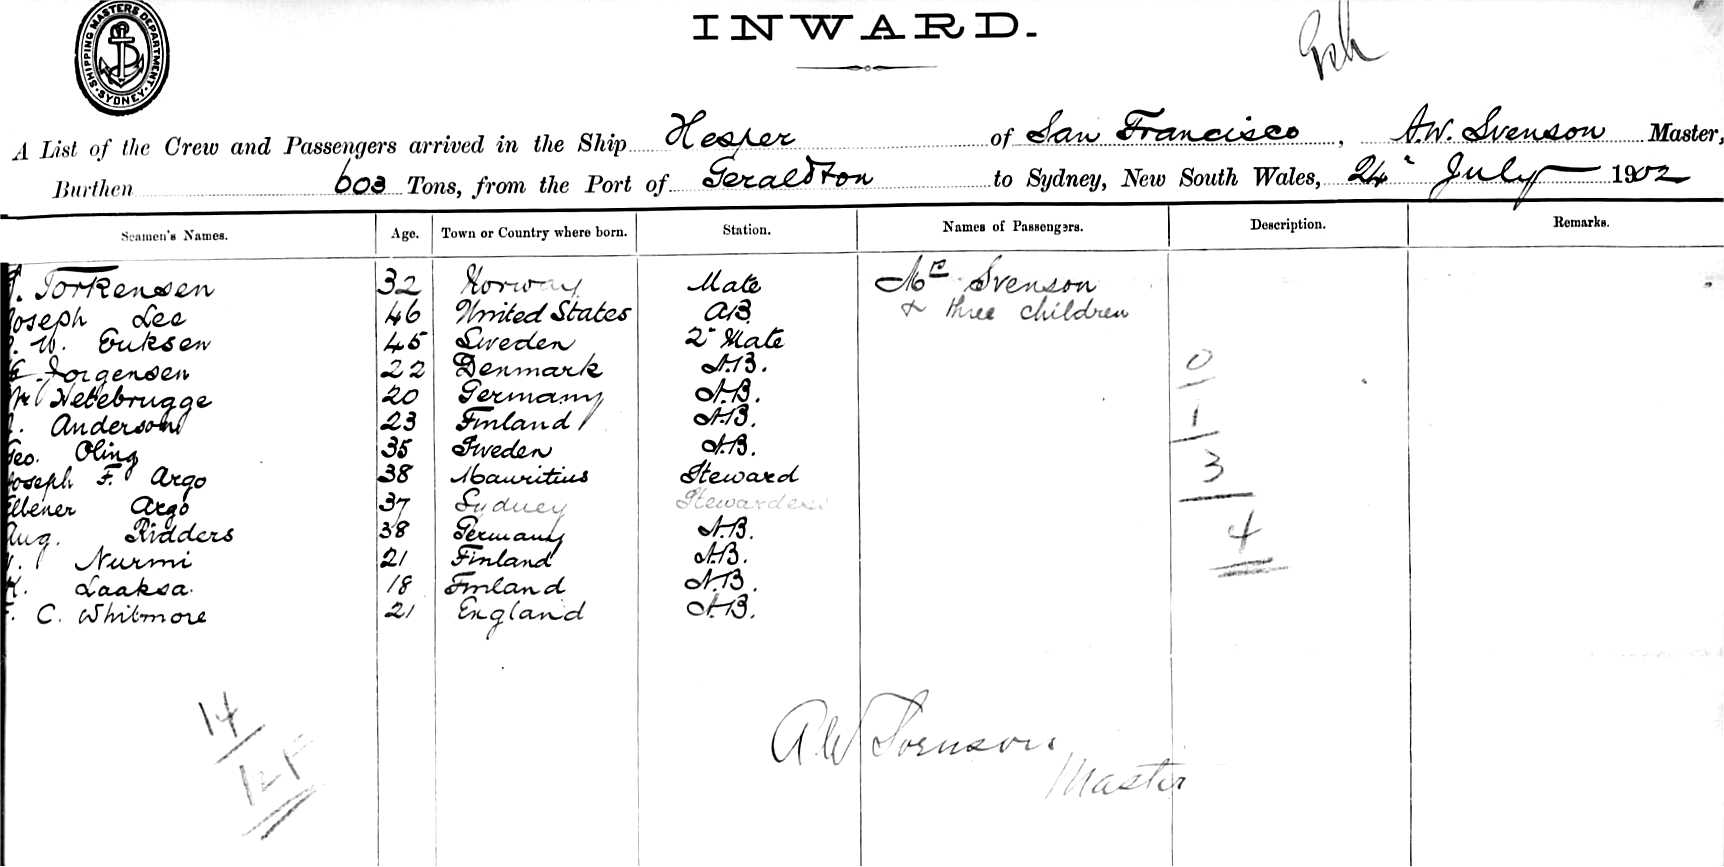 SHIPPING MASTERS DEPARTMENT. SYDNEY.
INWARD.
A List of the Crew and Passengers arrived in the Ship Hesper of San Francisco, A.W. Svenson Master,
Burthen 603 Tons, from the Port of Geraldton to Sydney, New South Wales, 24" July 1902
Seamen's Names. Age. Town or Country where born. Station. Names of Passengers. Description. Remarks.
Torkensen 32 Norway Mate Mrs Svenson
Joseph Lee 46 United States AB & three children
W. Eriksen 45 Sweden 2" Mate
Jorgensen 22 Denmark A.B. 0
Hetebrugge 20 Germany A.B.
Anderson 23 Finland A.B. 1
Geo. Oling 35 Sweden A.B.
Joseph F. Argo 38 Mauritius Steward 3
Elbener Argo 37 Sydney Stewardess
Aug. Ridders 38 Germany A.B. 4
Nurmi 21 Finland A.B.
K. Laaksa. 18 Finland A.B.
F. C. Whitmore 21 England A.B.
14
A W Svenson
Master